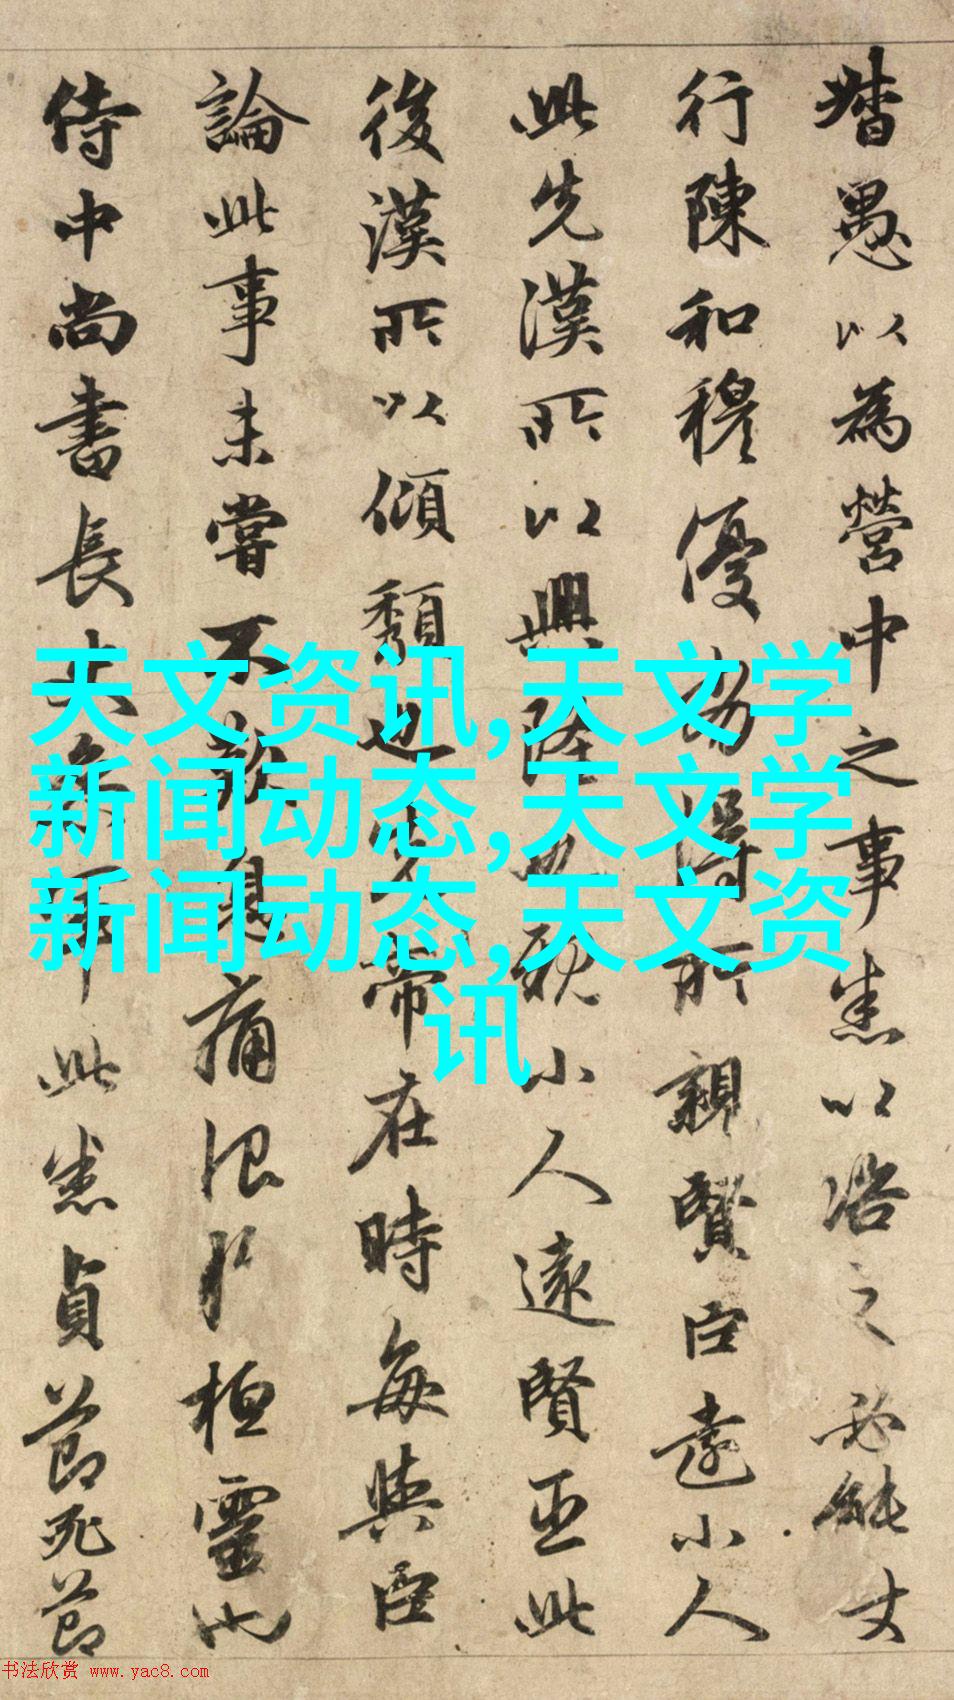 督愚以為營中之事悉以咨之必能使
行陳和穆優劣得所親賢臣遠小人
此先漢所以興隆也親小人遠賢臣此
後漢所以傾頹也先帝在時每與臣
論此事未嘗不歎息痛恨於桓靈也
侍中尚書長史參軍此悉貞節死節
天文资讯,天文学
新闻动态,天文学
新闻动态,天文资
讯
书法欣赏 www.yac8.com